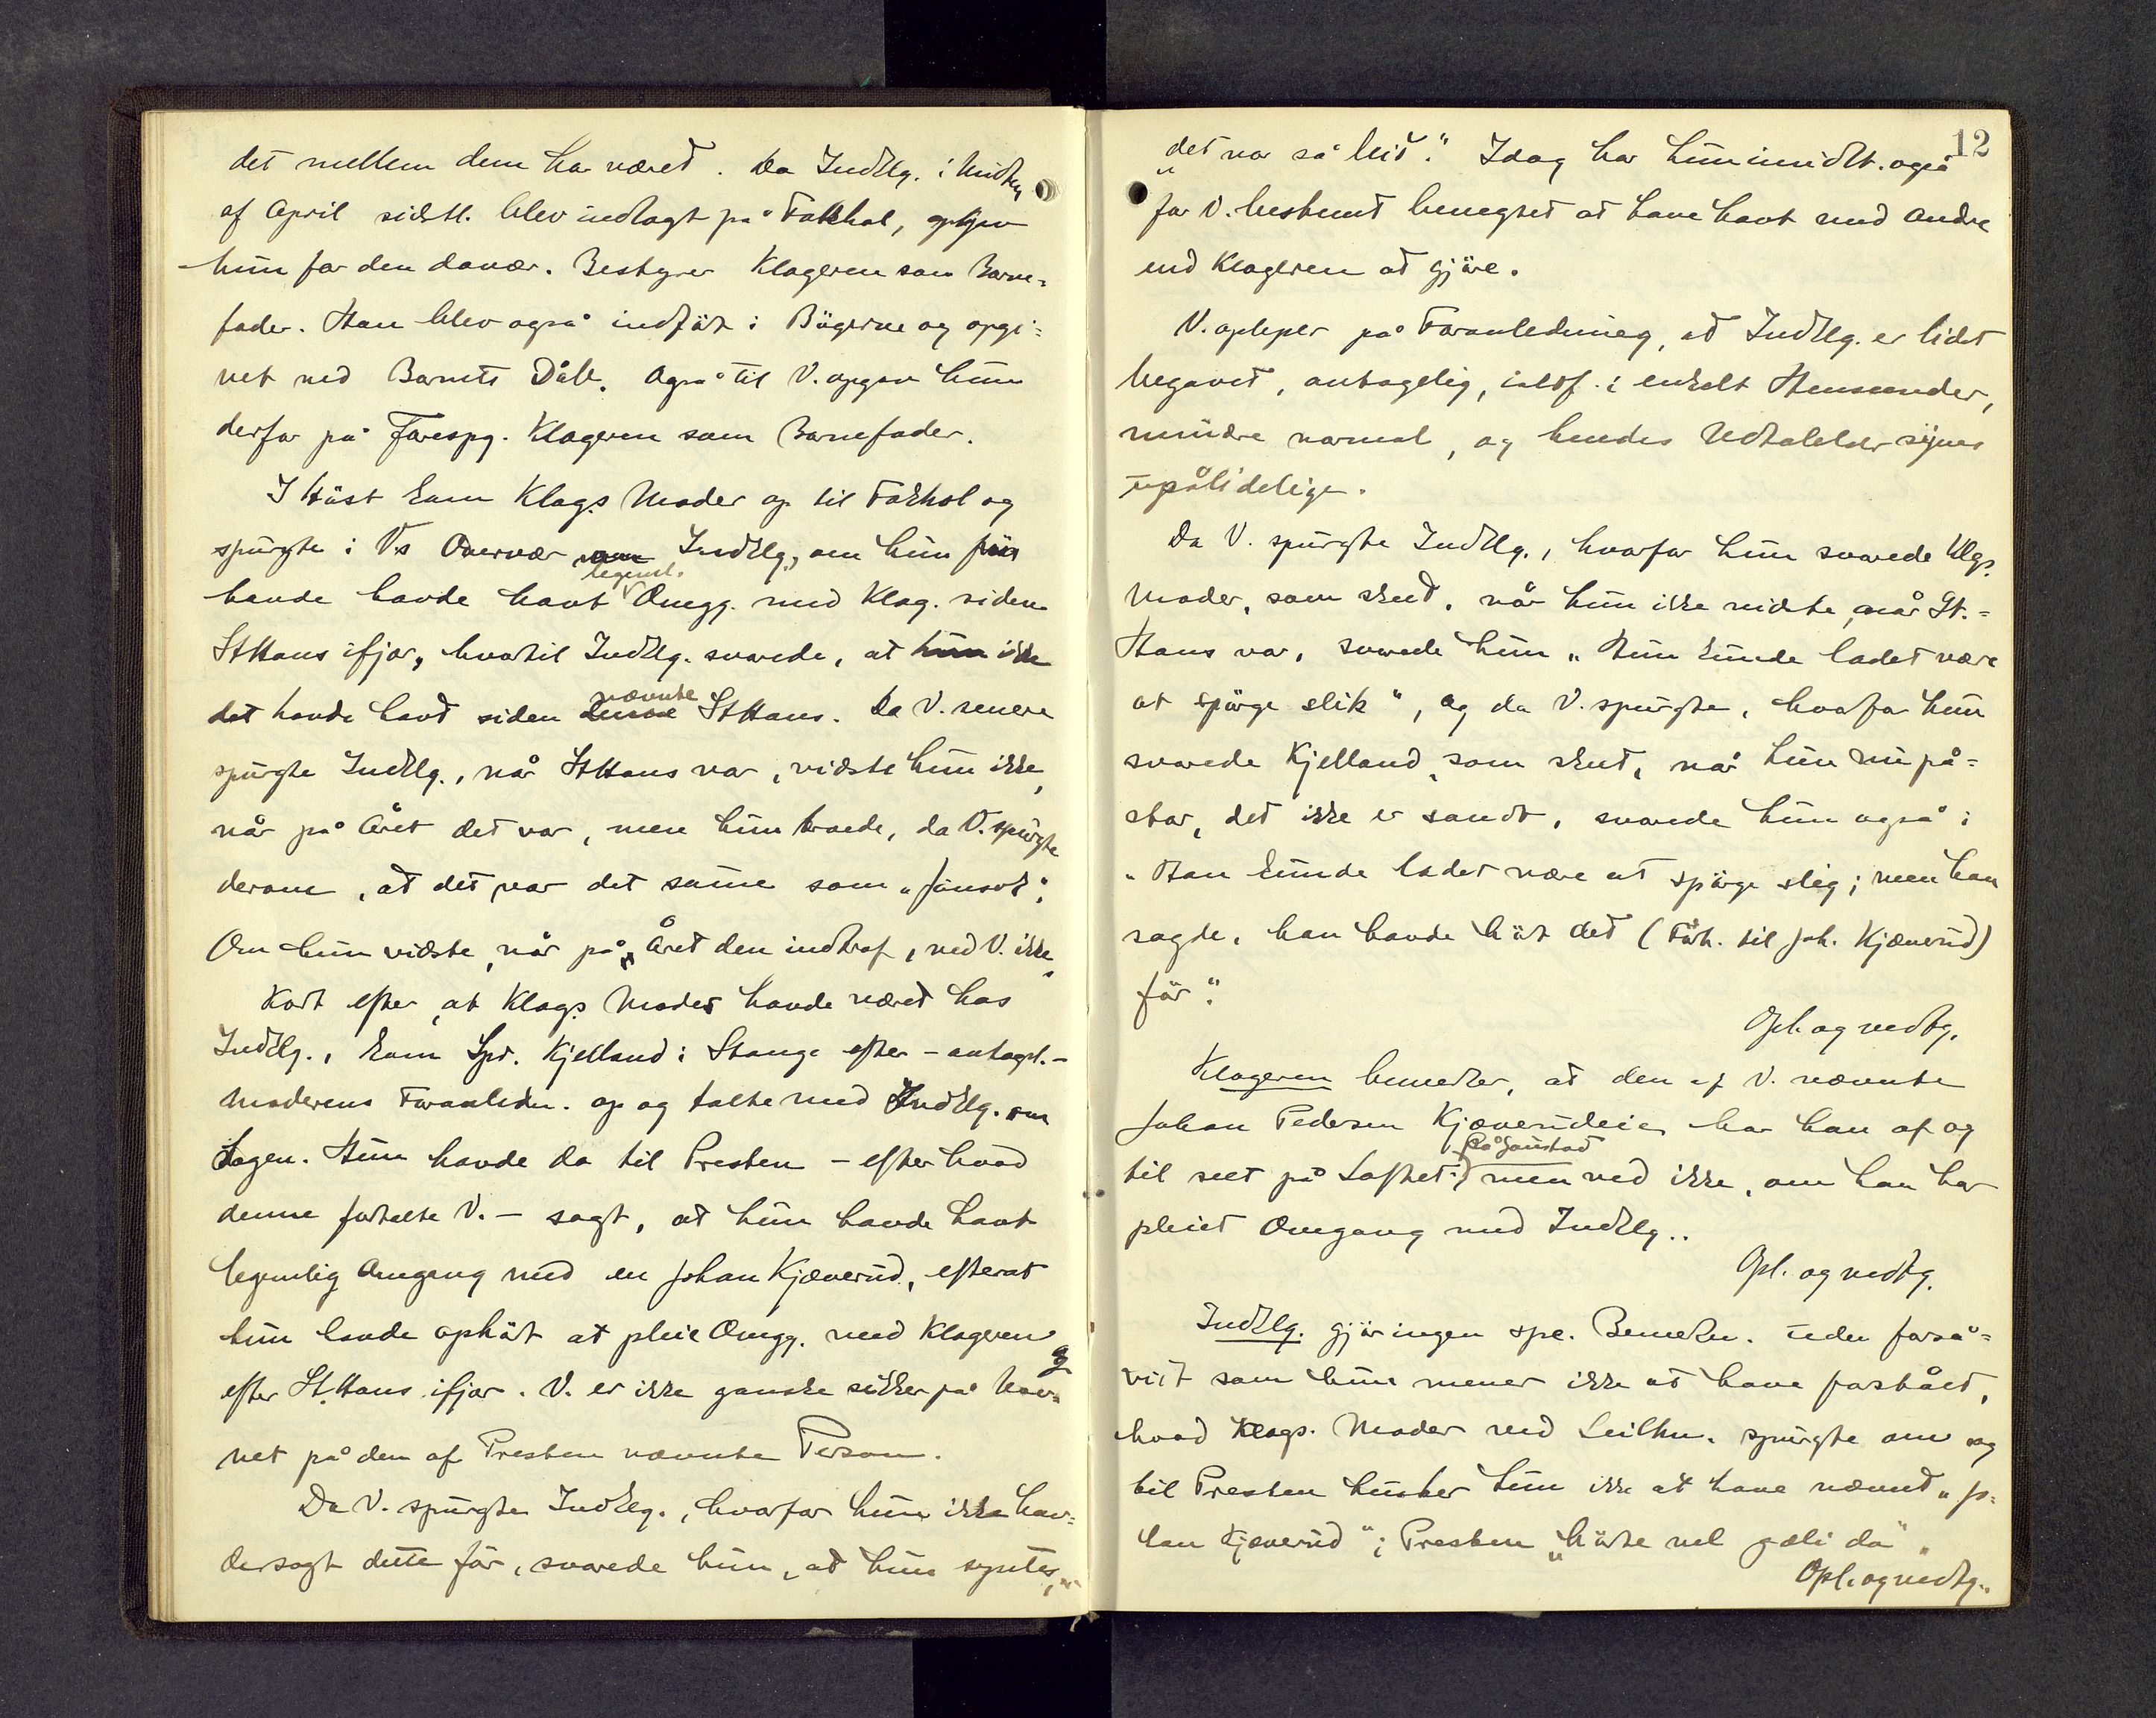 det mellem dem har været. Da Indklg. i Midten
af April sidstl. blev indlagt på Fakkal, opgav
hun for den davær. Bestyrer Klageren som Barne=
fader. Han blev også indført i Bøgerne og opgi=
vet ved Barnets Dåb. Også til V. opgav hun
derfor på Forespg. Klageren som Barnefader.
I Høst kom Klags. Moder op til Fakhol og
spurgte i V's Overvær Indklg., om hun
havde havde havt legeml. Omgg. med Klag. siden
StHans ifjor, hvortil Indklg. svarede, at hun ikke
det havde havt siden nævnte StHans. Da V. senere
spurgte Indklg., når StHans var, vidste hun ikke,
når på Året det var, men hun troede, da V. spurgte
derom, at det var det samme som „Jonsok“.
Om hun vidste, når på Året den indtraf, ved V. ikke.
Kort efter, at Klags. Moder havde været hos
Indklg., kom Spr. Kjelland i Stange efter - antagel. -
Moderens Foranledn. op og talte med Indklg. om
Sagen. Hun havde da til Presten - efter hvad
denne fortalte V. - sagt, at hun havde havt
legemlig Omgang med en Johan Kjæverud, efterat
hun havde ophørt at pleie Omgg. med Klageren
efter St.Hans ifjor. V. er ikke ganske sikker på Nav=
net på den af Presten nævnte Person.
Da V. spurgte Indklg., hvorfor hun ikke hav=
de sagt dette før, svarede hun, at hun syntes,
12
„det var så leit“. Idag har hun imidlt. også
for V. bestemt benegtet at have havt med andre
end Klageren at gjøre.
V. oplyser på Foranledning, at Indklg. er lidet
begavet, antagelig, ialdf. i enkelt Henseender,
mindre normal, og hendes Udtalelser synes
upålidelige.
Da V. spurgte Indklg., hvorfor hun svarede Klgs.
Moder, som skeet, når hun ikke vidste, når St.=
Hans var, svarede hun „Hun kunde ladet være
at spørge slik“, og da V. spurgte, hvorfor hun
svarede Kjelland, som skeet, når hun nu på=
står, det ikke er sandt, svarede hun også:
„Han kunde ladet være at spørge slig; men han
sagde, han havde hørt det (Förh. til Joh. Kjæverud)
før“.
Opl. og vedtg.
Klageren bemerker, at den af V. nævnte
Johan Pedersen Kjæverudeie har han af og
til seet på Loftet på Jønstad men ved ikke, om han har
pleiet Omgang med Indklg..
Opl. og vedtg.
Indklg. gjør ingen spe. Bemerkn. uden forså=
vidt som hun mener ikke at have forstået,
hvad Klags. Moder ved Leilhn. spurgte om og
til Presten husker hun ikke at have nævnt „Jo=
han Kjæverud“; Presten „hørte vel gæli da“.
Opl. og vedtg.